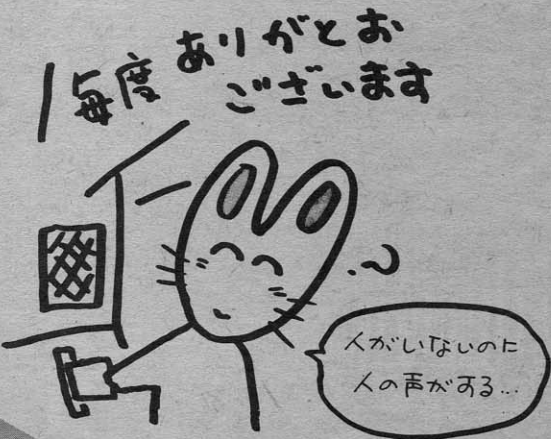 毎度 ありがとお
ございます
人がいないのに
人の声がする...